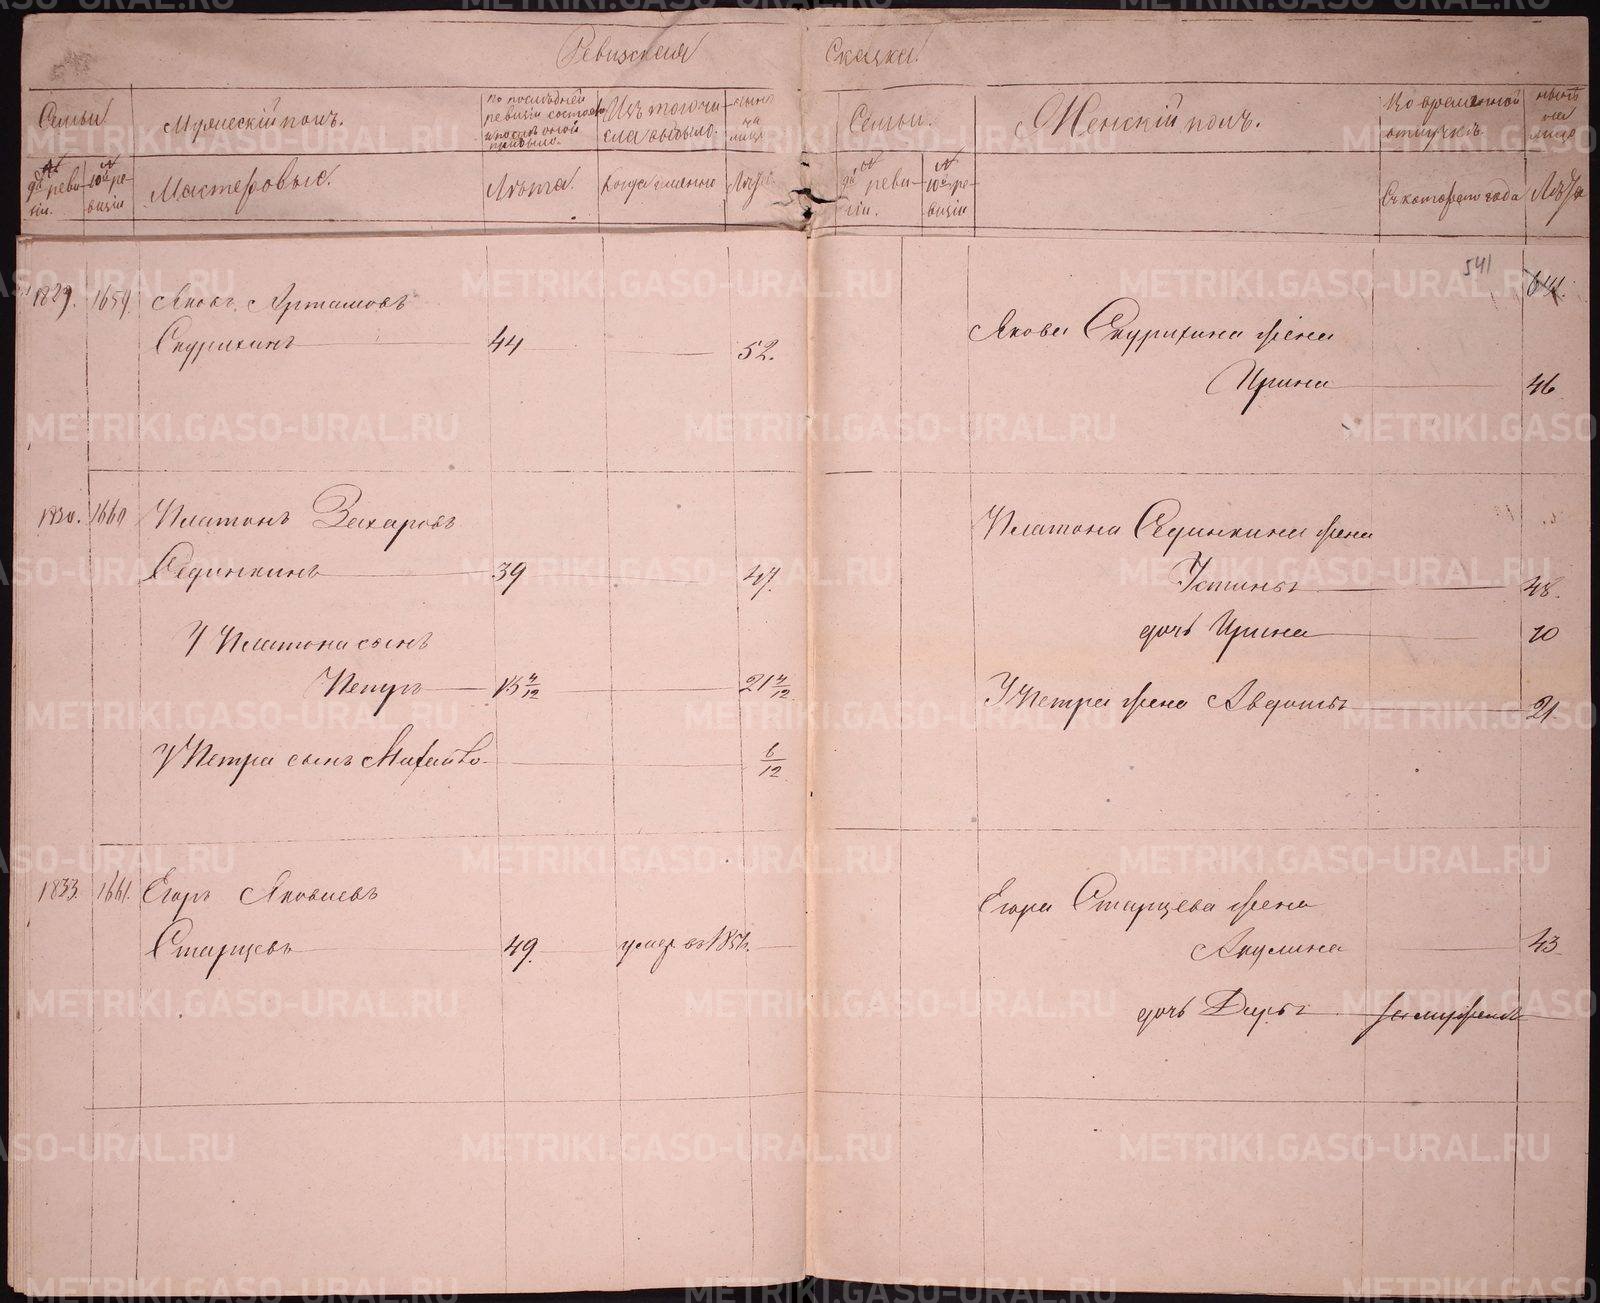 Ревизская Сказка.
Семьи
Мужескій полъ.
по послѣдней
ревизіи состояло
и послѣ оной
прибыло.
Изъ того чи-
сла выбыло.
нынѣ
на
лицо
№
9й реви-
зіи.
№
10й ре-
визіи
Мастеровые.
Лѣта.
когда именно
Лѣта
Семьи.
Женскій полъ.
Во временной
отлучкѣ.
нынѣ
на
лицо
№
9й реви-
зіи.
№
10й ре-
визіи
Съ котораго года
Лѣта
541
641.
1829. 1659. Яковъ Артамовъ
Скурихинъ 44 52.
Якова Скурихина жена
Ирина 46
1830. 1660 Платонъ Захаровъ
Сединкинъ 39 47.
У Платона сынъ
Петръ 13 4/12 21 4/12
У Петра сынъ Михайло 6/12
Платона Сединкина жена
Устинья 48.
дочь Ирина 10
У Петра жена Авдотья 21
1833. 1661. Егоръ Яковлевъ
Старцевъ 49. умер въ 1857.
Егора Старцева жена
Акулина 43
дочь Дарья замужемъ
METRIKI.GASO-URAL.RU